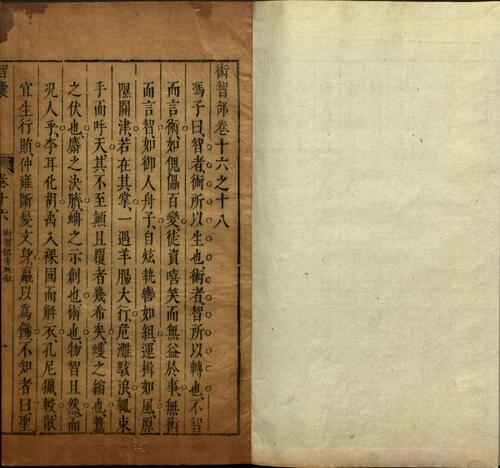 術智部卷十六之十八
馮子曰智者術所以生也術者智所以轉也不智
而言術如傀儡百變徒資嘻笑而無益於事無術
而言智如御人舟子自炫執轡如組運楫如風原
隰關津若在其掌一遇羊腸大行危灘駭浪輒束
手而呼天其不至顛且覆者幾希矣蠖之縮也蟄
之伏也麝之決臍蚺之示創也術也物智且然而
況人乎李耳化胡禹入裸國而解衣孔尼獵較散
宜生行賄仲雍斷髮文身贏以為飾不知者曰聖
智囊
卷十六
術智部
一